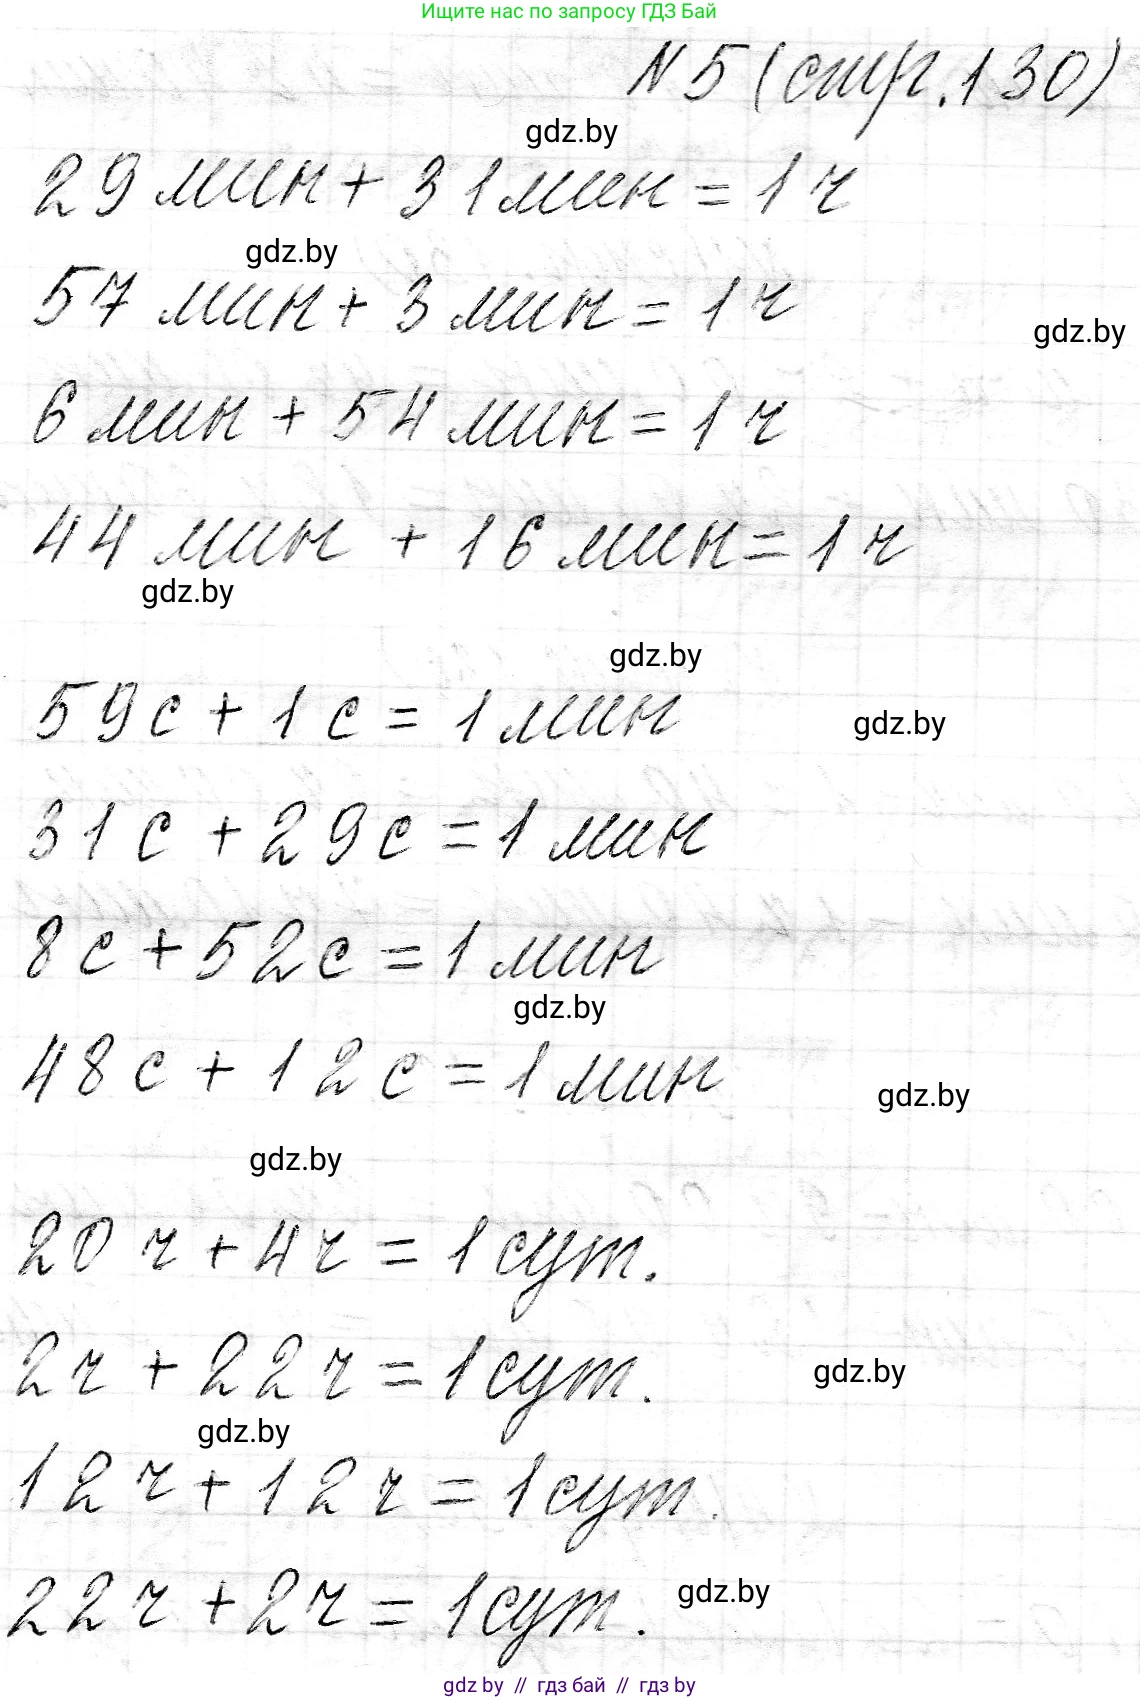 Ищите нас по запросу ГДЗ Бай
N 5 (стр. 130)
gdz.by
29 мин + 31 мин = 1 ч
gdz.by
57 мин + 3 мин = 1 ч
gdz.by
6 мин + 54 мин = 1 ч
44 мин + 16 мин = 1 ч
gdz.by
gdz.by
59 с + 1 с = 1 мин
gdz.by
31 с + 29 с = 1 мин
8 с + 52 с = 1 мин
gdz.by
48 с + 12 с = 1 мин
gdz.by
gdz.by
20 ч + 4 ч = 1 сут.
2 ч + 22 ч = 1 сут.
gdz.by
gdz.by
12 ч + 12 ч = 1 сут.
22 ч + 2 ч = 1 сут.
gdz.by
gdz by // гдз бай // gdz by